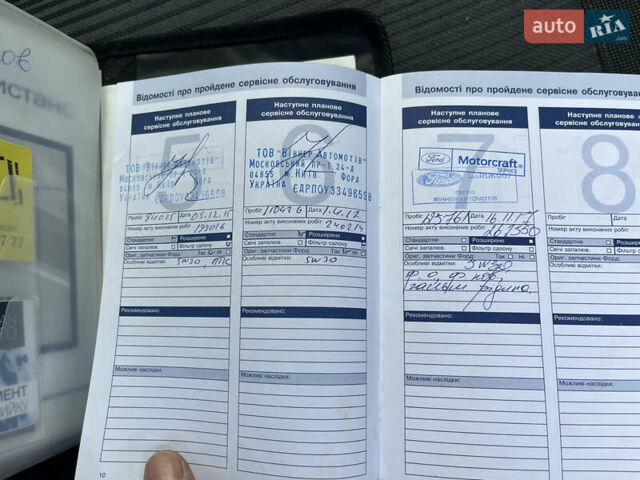 auto RIA
.com
Відомості про пройдене сервісне обслуговування
Наступне планове
сервісне обслуговування
5
ТОВ "Віннер Автомотів"
Московський пр-т 24-д
04855 м.Київ Форд
Україна
Пробіг 84025 Дата 05.12.15
Номер акту виконаних робіт
Стандартне Розширене
Свічі запалюв. Фільтр салону
Ориг. запчастини Форд: Так Ні
Особливі відмітки: 5W30,
Рекомендовано:
Можливі наслідки:
10
Наступне планове
сервісне обслуговування
6
ТОВ "Віннер Автомотів"
Московський пр-т 24-д
04855 м.Київ Форд
Україна ЄДРПОУ33496598
Пробіг 110496 Дата 1.4.17
Номер акту виконаних робіт 240214
Стандартне Розширене
Свічі запалюв. Фільтр салону
Ориг. запчастини Форд: Так Ні
Особливі відмітки: 5W30
Рекомендовано:
Можливі наслідки:
Відомості про пройдене сервісне обслуговування
Наступне планове
сервісне обслуговування
7
Ford Motorcraft
SERVICE
Ford
ВІННЕР АВТОМОТІВ
Пробіг Дата 16.11.17
Номер акту виконаних робіт
Стандартне Розширене
Свічі запалюв. Фільтр салону
Ориг. запчастини Форд: Так Ні
Особливі відмітки: 5W30
Рекомендовано:
Можливі наслідки:
Наступне планове
сервісне обслуговування
8
Пробіг Дата
Номер акту виконаних робіт
Стандартне
Свічі запалюв.
Ориг. запчастини Форд:
Особливі відмітки:
Рекомендовано:
Можливі наслідки: